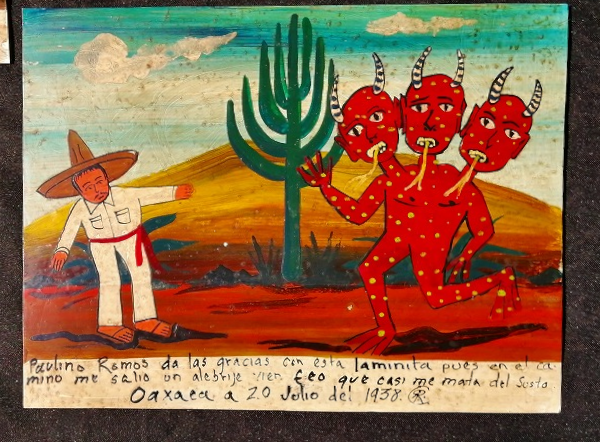 Paulino Ramos da las gracias con esta laminita pues en el ca
mino me salio un alebrije vien feo que casi me mata del susto
Oaxaca a 20 Julio del 1938. R